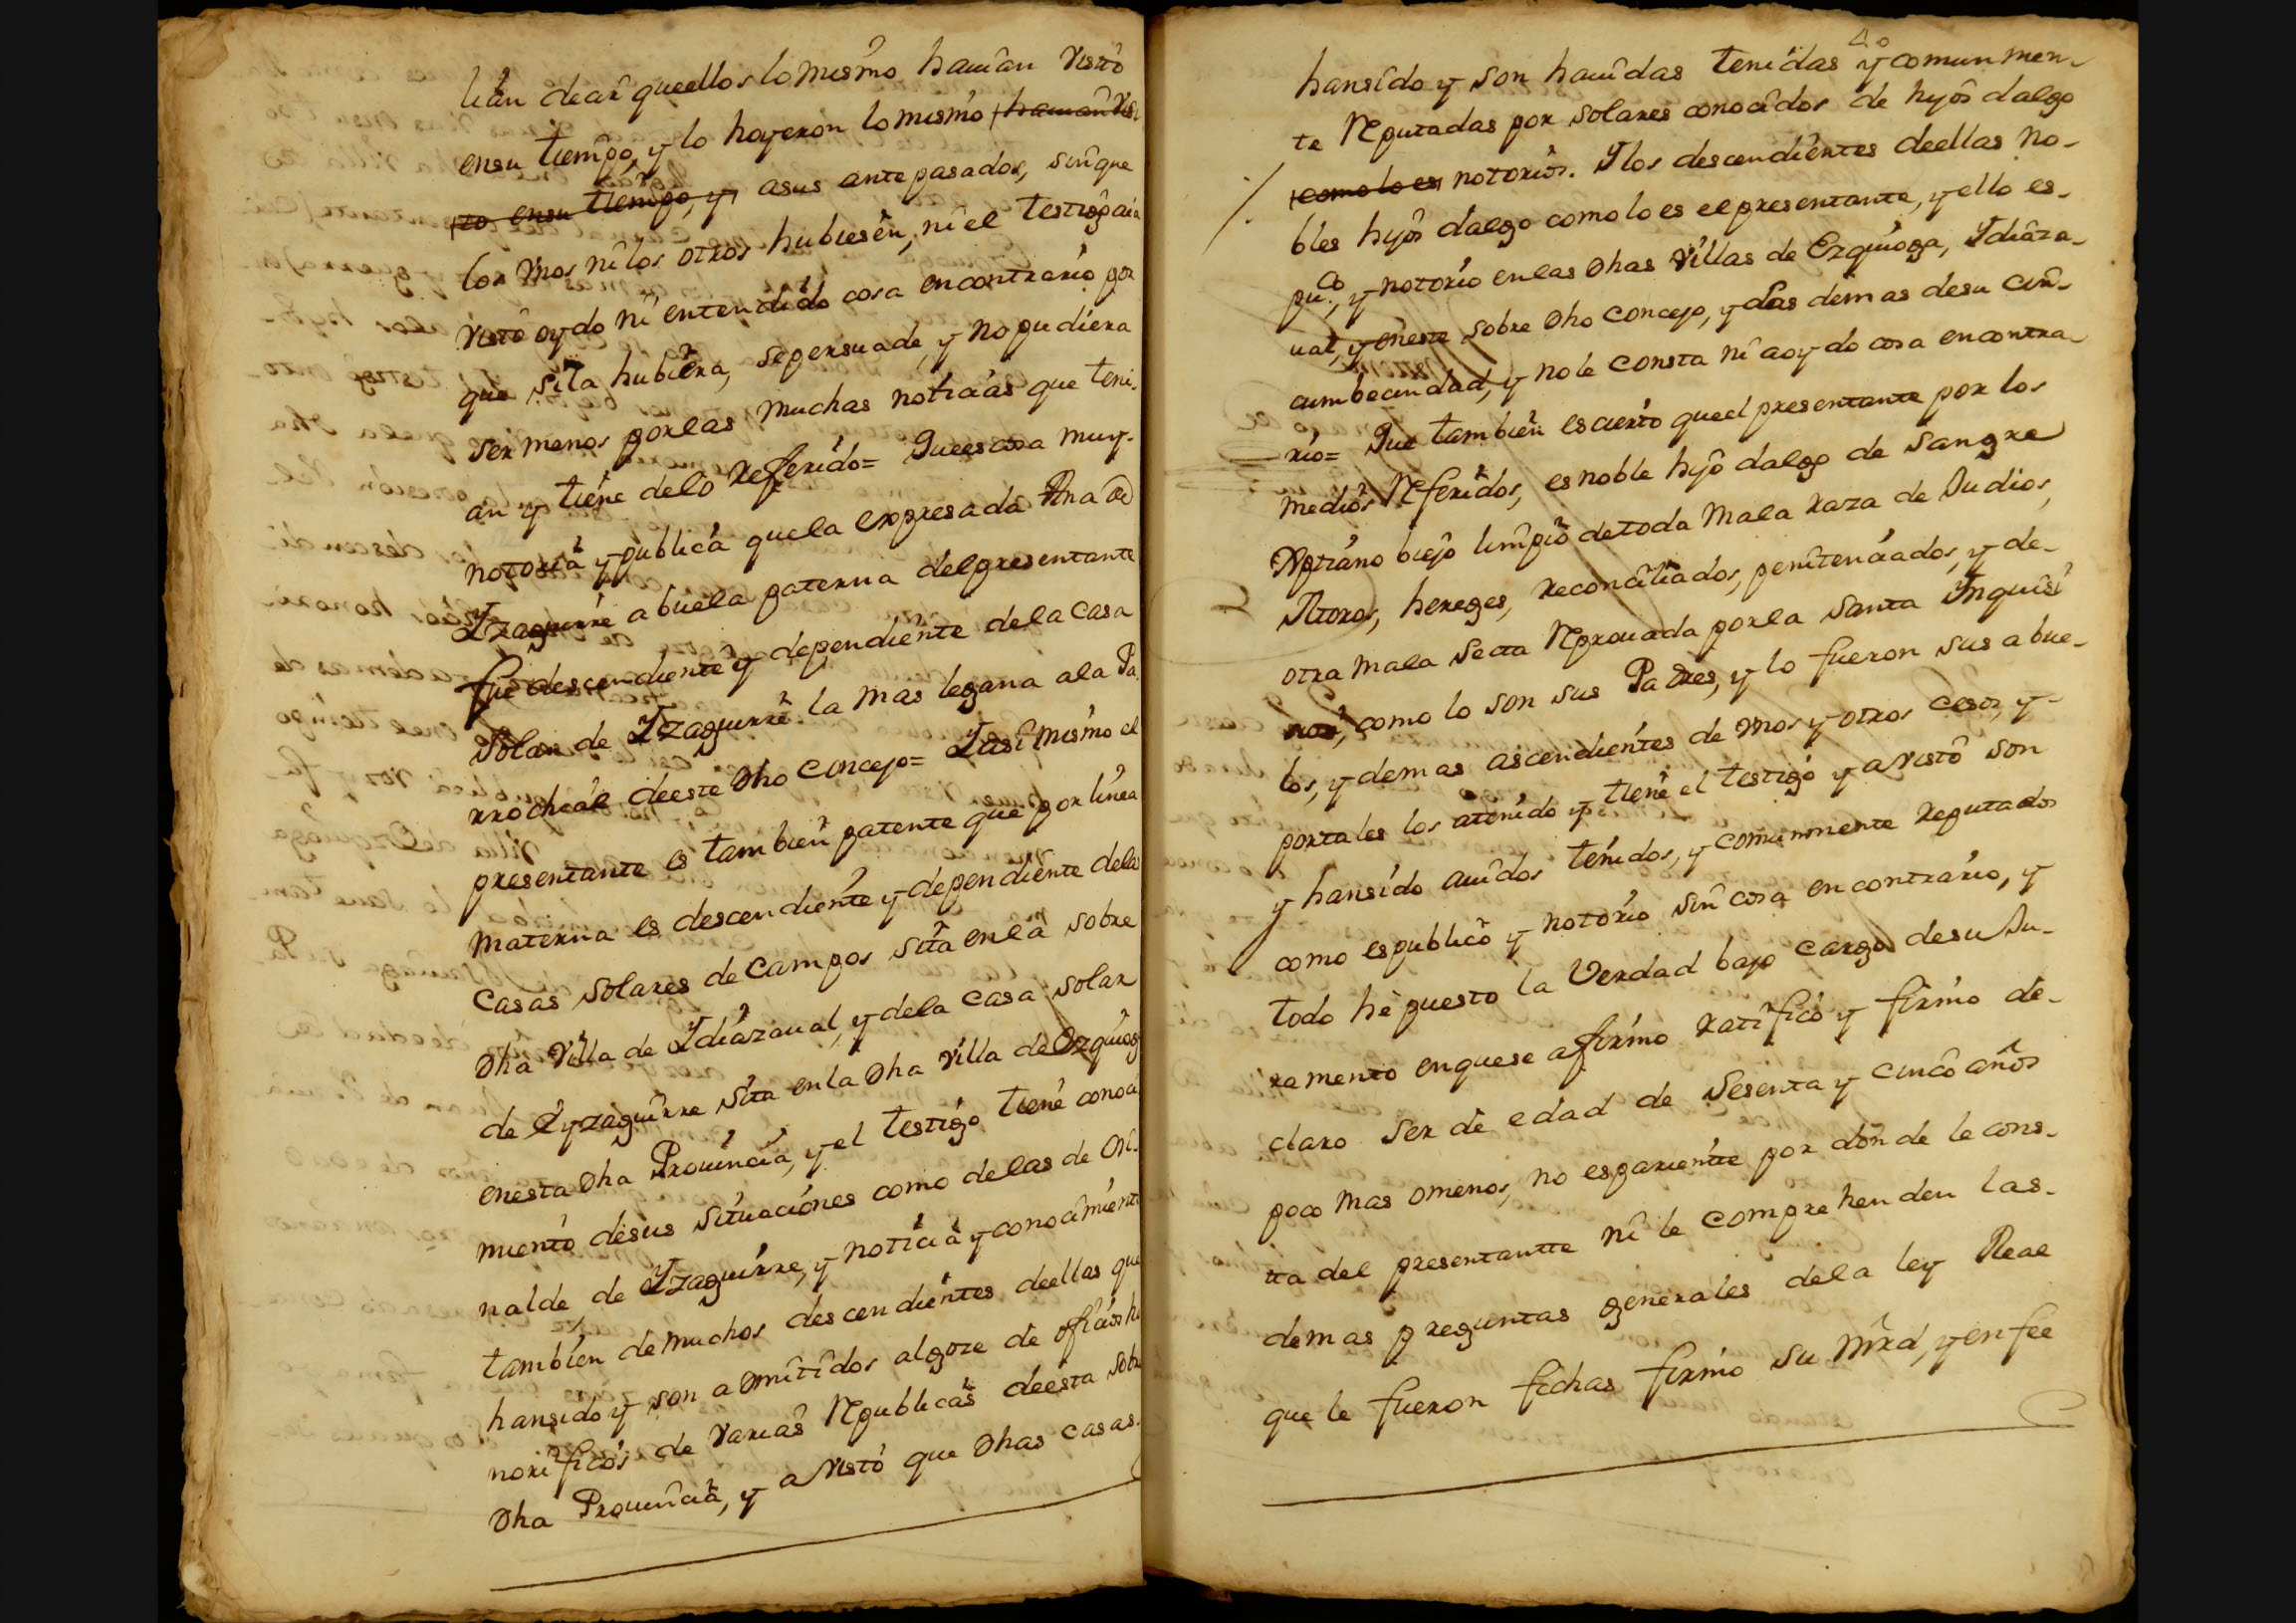 lian decir que ellos lo mismo havian visto
en su tiempo, y lo hoyeron lo mismo havian vis
to en su tiempo, y asus ante pasados, sin que
los vnos ni los otros hubiesen, ni el testigo aia
visto oydo ni entendido cosa en contrario por
que si la hubiera, se persuade, y no pudiera
ser menos por las muchas noticias que teni-
an y tiene de lo Referido= Que es cosa muy-
notoria y publica que la expresada Ana de
Yzaguirre abuela paterna del presentante
fue descendiente y dependiente de la casa
solar de Yzaguirre la mas legana a la Pa
rrochial de este Dho Concejo= Y asi mismo el
presentante es tambien patente que por linea
materna es descendiente y dependiente de las
Casas solares de Campos sita en la sobre
Dha Villa de Ydiazaual, y de la casa solar
de Eyzaguirre sita en la Dha villa de Ezquiog
en esta Dha Prouincia, y el testigo tiene conoci
miento de sus situaciones como de las de Ori-
nalde, de Yzaguirre, y noticia y conocimient
tambien de muchos descendientes de ellas que
han sido y son admitidos al goze de oficios ho
norificos de varias Republicas de esta sobre
Dha Prouincia, y a visto que Dhas casas.
40
han sido y son hauidas tenidas y comunmen-
te Reputadas por solares conocidos de hijos dalgo
como lo es notorios. Y los descendientes de ellas no-
bles hijos dalgo como lo es el presentante, y ello es-
pu.co, y notorio en las Dhas Villas de Ezquioga, Ydiaza-
ual, y en este sobre Dho Concejo, y das demas de su cir-
cumbecindad, y no le consta ni a oydo cosa en contra-
rio= Que tambien es cierto que el presentante por los
medios Referidos, es noble hijo dalgo de sangre
Xptiano biejo limpio de toda mala raza de Judios,
Moros, hereges, reconciliados, penitenciados, y de-
otra mala secta Reprouada por la santa Ynquisi
cion, como lo son sus Padres, y lo fueron sus abue-
los, y demas ascendientes de vnos y otros cesor, y-
por tales los a tenido y tiene el testigo y a visto son
y han sido auidos tenidos, y comunmente reputados
como es publico y notorio sin cosa en contrario, y
todo he puesto la Verdad bajo cargo de su Ju-
ramento en que se afirmo ratifico y firmo de-
claro ser de edad de sesenta y cinco años
poco mas o menos, no es pariente por donde le cons-
ta del presentantte ni le comprehenden las-
demas preguntas generales de la ley Real
que le fueron fechas firmo su mrd, y en fee